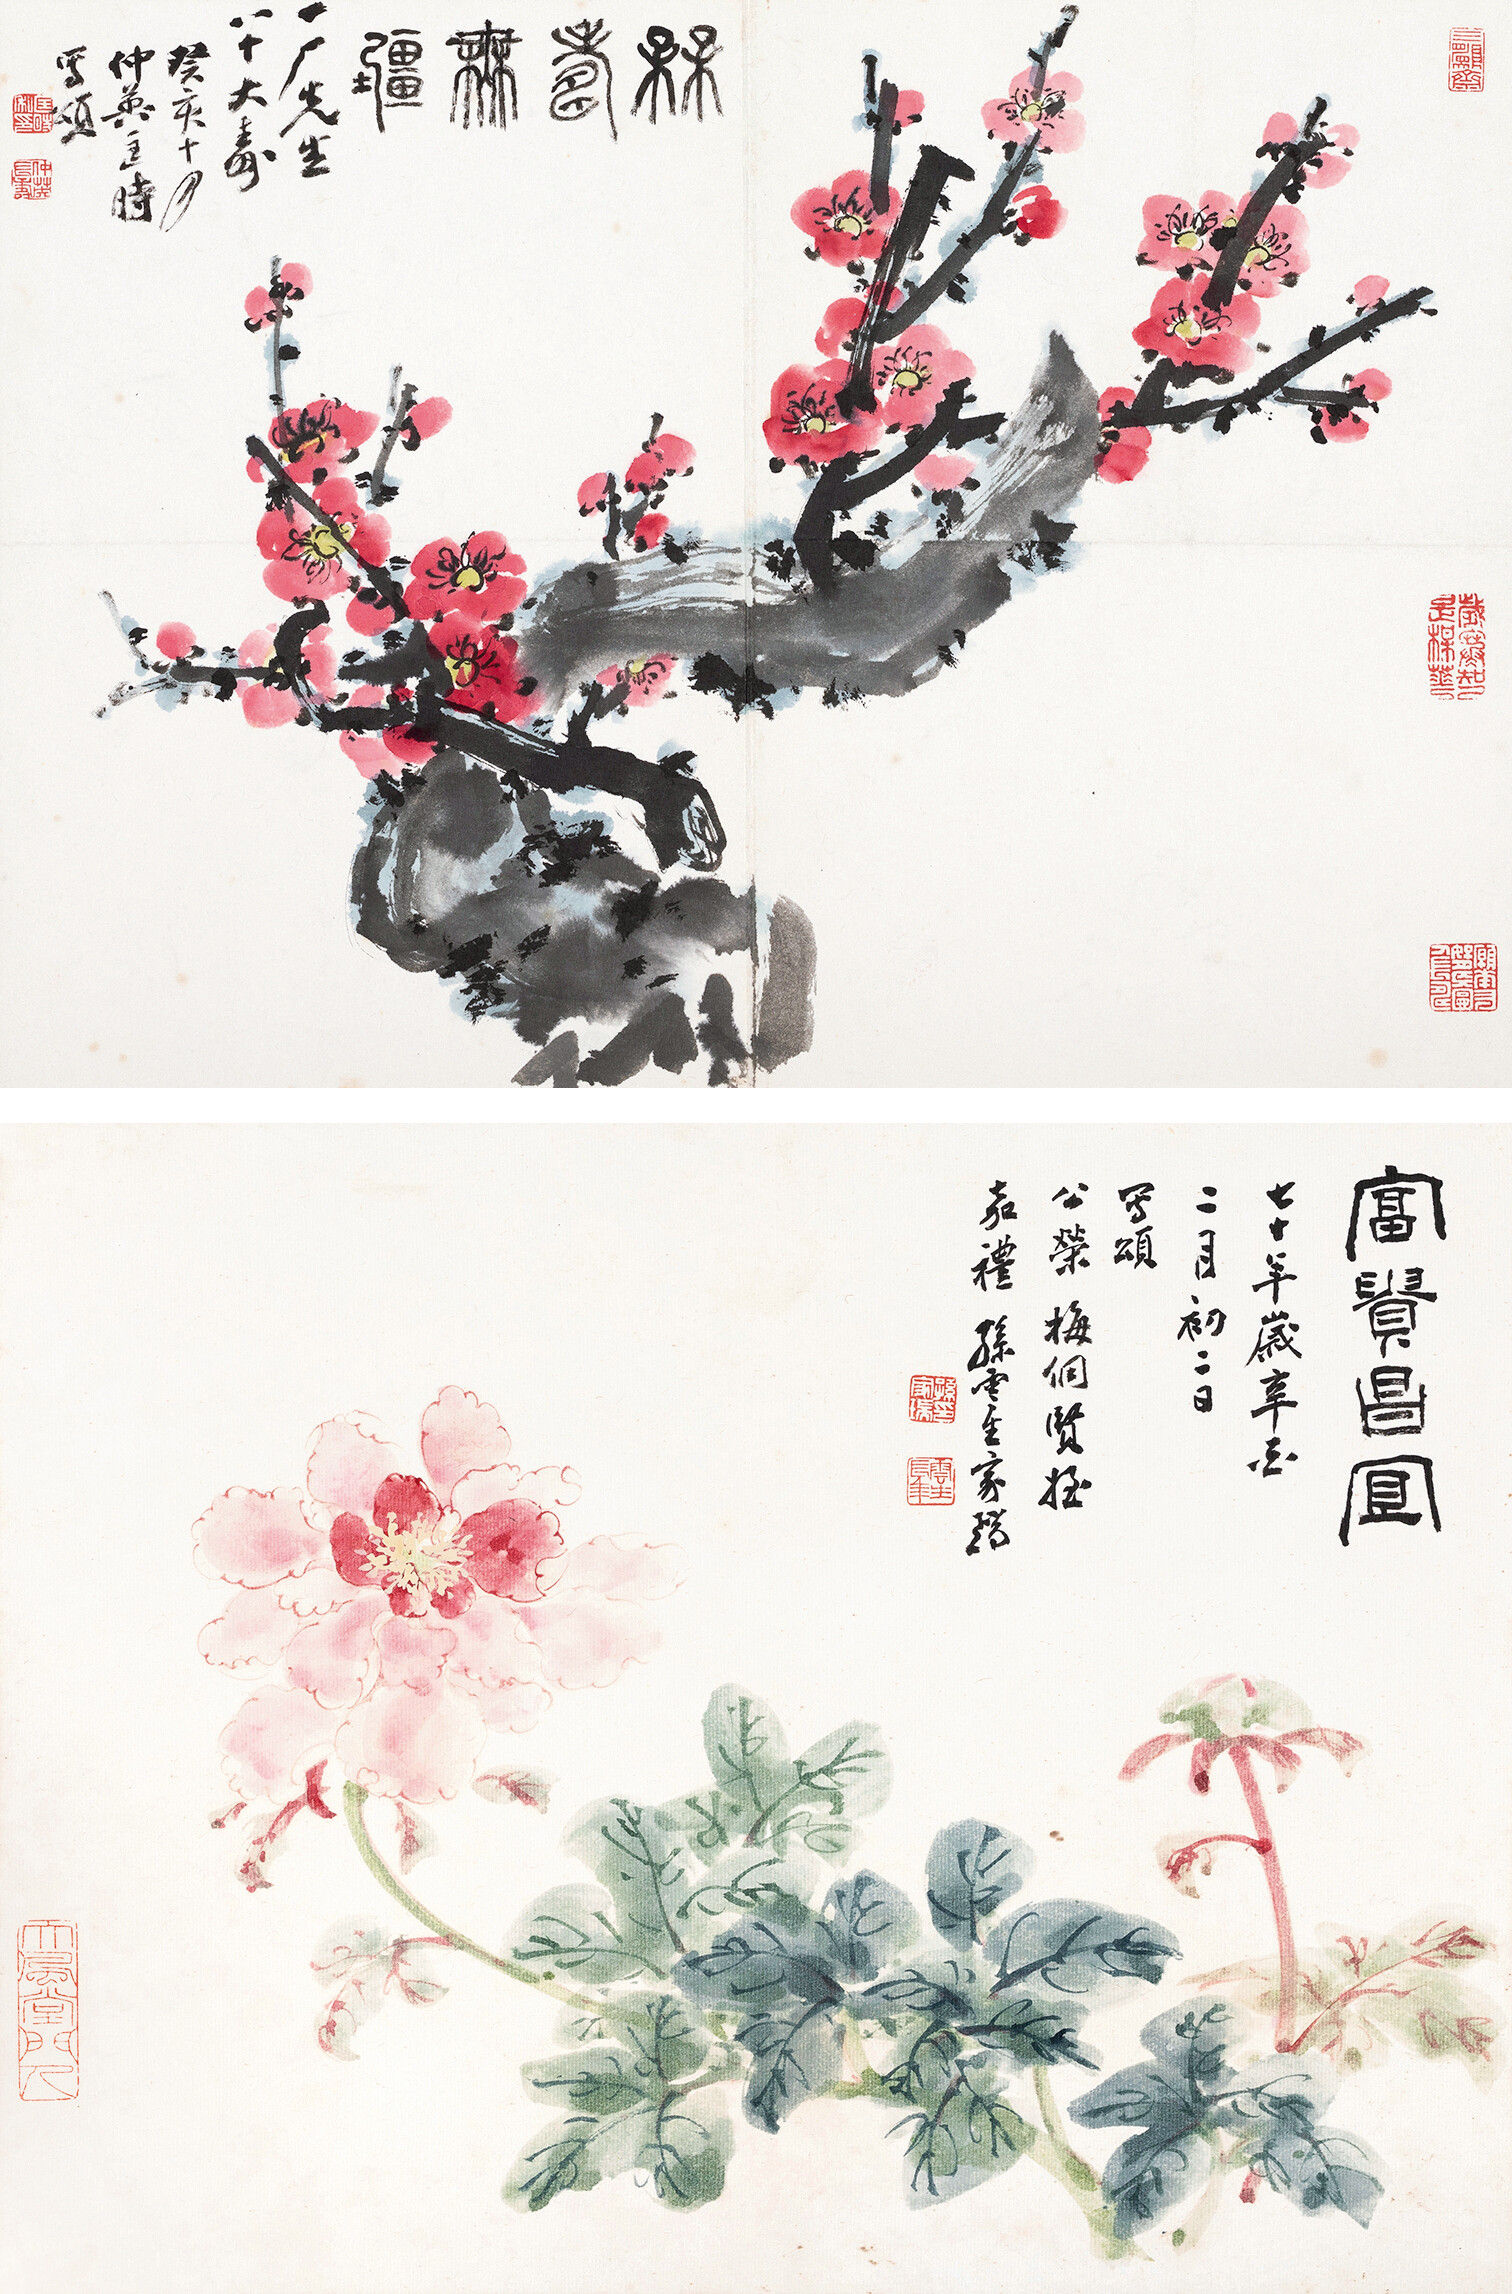 槑壽無疆
一厂先生
八十大壽
癸亥十月
仲英匡時
寫頌
富貴昌宜
七十年歲辛酉
二月初二日
寫頌
公榮 梅侗賢姪
嘉禮 孫雲生家瑞
大風堂門人